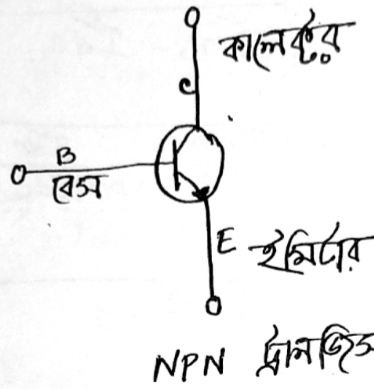 কালেক্টর
C
B
বেস
E ইমিটার
NPN ট্রানজিস